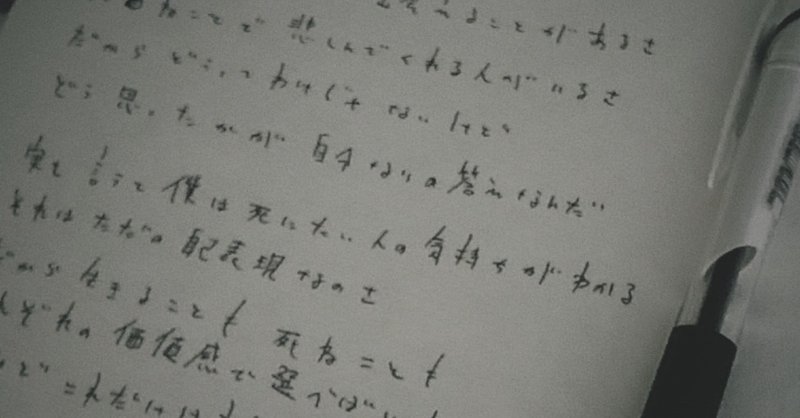 ることがあるさ
ことで悲しんでくれる人がいるさ
だからどうってわけじゃないけど
どう思ったかが自分なりの答えなんだ
実を言うと僕は死にたい人の気持ちがわかる
それはただの自己表現なのさ
だから生きることも死ぬことも
ぞれの価値感で選べばい
どこれだけは